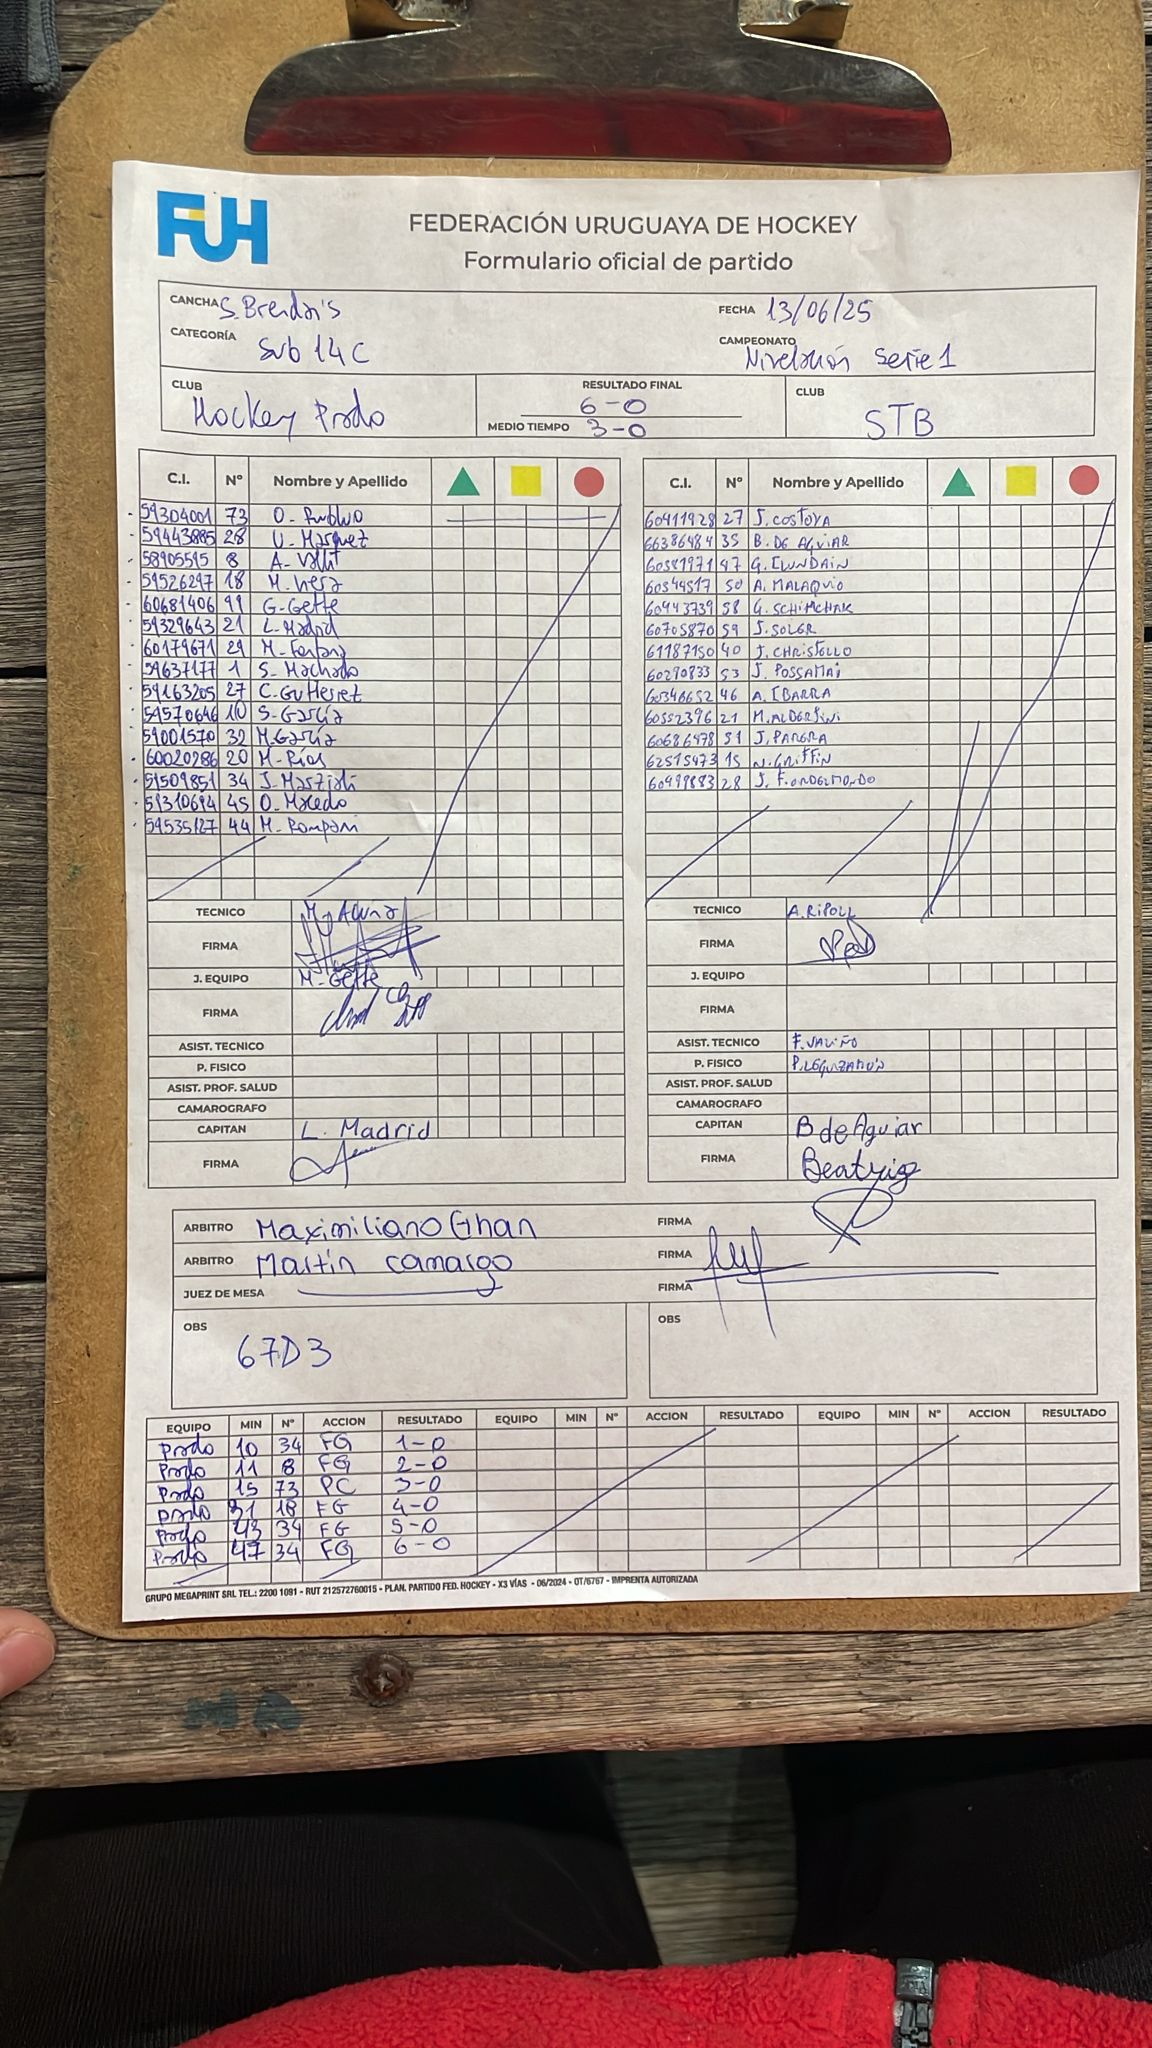 FUH
FEDERACIÓN URUGUAYA DE HOCKEY
Formulario oficial de partido
CANCHA S. Brendan's
FECHA 13/06/25
CATEGORÍA Sub 14 C
CAMPEONATO Nivelación Serie 1
CLUB Hockey Prado
RESULTADO FINAL 6-0
MEDIO TIEMPO 3-0
CLUB STB
C.I. Nº Nombre y Apellido
59304001 73 O.
59443885 28 U. Marquez
58905595 8 A.
59526297 18 M. Vera
60681406 99 G. Gette
59329643 21 L. Madrid
60179671 29 M.
59637177 1 S. Machado
59163205 27 C. Gutierrez
59570646 10 S. García
59001570 32 M. García
60020286 20 M. Ríos
51509851 34 J.
59310694 45 O. Macedo
59535127 44 M.
C.I. Nº Nombre y Apellido
60411928 27 J. COSTOYA
66386484 35 B. DE AGUIAR
60581971 47 G. ILUNDAIN
60544517 50 A. MALAQUIO
60443739 58 G. SCHIMCHAK
60705870 59 J. SOLER
61187150 40 J. CHRISTELLO
60290833 53 J. POSSAMAI
60346652 46 A. IBARRA
60552396 21 M.
60686478 51 J. PARERA
62515473 15 N. GRIFFIN
60499883 28 J.
TECNICO M. Acuna
FIRMA
J. EQUIPO M. Gette
FIRMA
ASIST. TECNICO
P. FISICO
ASIST. PROF. SALUD
CAMAROGRAFO
CAPITAN L. Madrid
FIRMA
TECNICO A. RIPOLL
FIRMA
J. EQUIPO
FIRMA
ASIST. TECNICO F. VALIÑO
P. FISICO P. LEGUIZAMÓN
ASIST. PROF. SALUD
CAMAROGRAFO
CAPITAN B de Aguiar
FIRMA Beatriz
ARBITRO Maximiliano Ghan
FIRMA
ARBITRO Martin Camargo
FIRMA
JUEZ DE MESA
FIRMA
OBS 67D3
OBS
EQUIPO MIN Nº ACCION RESULTADO EQUIPO MIN Nº ACCION RESULTADO EQUIPO MIN Nº ACCION RESULTADO
Prado 10 34 FG 1-0
Prado 11 8 FG 2-0
Prado 15 73 PC 3-0
Prado 31 18 FG 4-0
Prado 43 34 FG 5-0
Prado 47 34 FG 6-0
GRUPO MEGAPRINT SRL TEL.: 2200 1091 - RUT 212572760015 - PLAN. PARTIDO FED. HOCKEY - X3 VÍAS - 06/2024 - OT/6767 - IMPRENTA AUTORIZADA